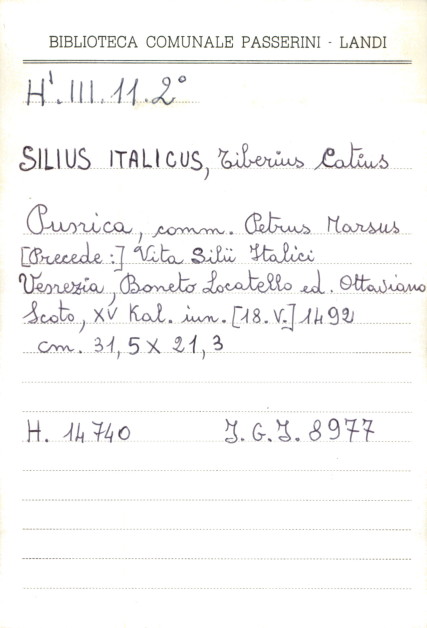 BIBLIOTECA COMUNALE PASSERINI - LANDI
H'.III.11.2°
SILIUS ITALICUS, Tiberius Catius
Punica, comm. Petrus Marsus
[Precede:] Vita Silii Italici
Venezia, Boneto Locatello ed. Ottaviano
Scoto, XV Kal. iun. [18.V.] 1492
cm. 31,5 X 21,3
H. 14740 I.G.I. 8977